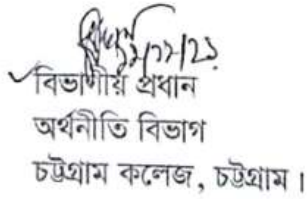 বিভাগীয় প্রধান
অর্থনীতি বিভাগ
চট্টগ্রাম কলেজ, চট্টগ্রাম।